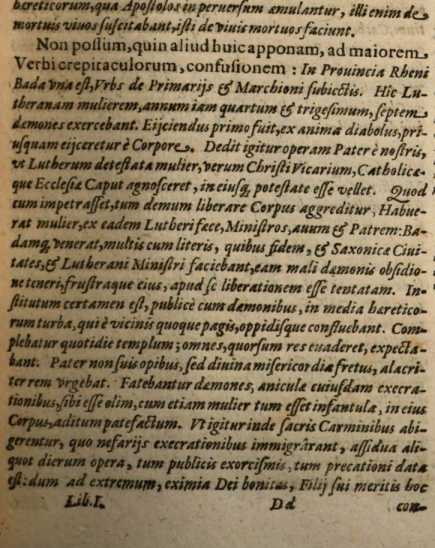 hereticorum, qua Apostolos in perversum æmulantur, illi enim de
mortuis vivos suscitabant, isti de vivis mortuos faciunt.
Non possum, quin aliud huic apponam, ad maiorem
Verbi crepitaculorum, confusionem: In Provincia Rheni
Bada vna est, Vrbs de Primarijs & Marchioni subiectis. Hîc Lu-
theranam mulierem, annum iam quartum & trigesimum, septem
dæmones exercebant. Eijciendus primo fuit, ex anima diabolus, pri-
usquam eijceretur è Corpore. Dedit igitur operam Pater è nostris,
vt Lutherum detestata mulier, verum Christi Vicarium, Catholicæ-
que Ecclesiæ Caput agnosceret, in eiusq; potestate esse vellet. Quod
cum impetrasset, tum demum liberare Corpus aggreditur, Habue-
rat mulier, ex eadem Lutheri fæce, Ministros, auum & Patrem: Ba-
damq; venerat, multis cum literis, quibus fidem, & Saxonicæ Ciui-
tates, & Lutherani Ministri faciebant, eam mali dæmonis obsidio-
ne teneri, frustraque eius, apud se liberationem esse tentatam. In-
stitutum certamen est, publicè cum dæmonibus, in media heretico-
rum turba, qui è vicinis quoque pagis, oppidisque confluebant. Com-
plebatur quotidie templum; omnes, quorsum res euaderet, expecta-
bant. Pater non suis opibus, sed diuina misericordia fretus, alacri-
ter rem vrgebat. Fatebantur dæmones, aniculæ cuiusdam execra-
tionibus, sibi esse olim, cum etiam mulier tum esset infantula, in eius
Corpus, aditum patefactum. Vt igitur inde sacris Carminibus abi-
gerentur, quo nefarijs execrationibus immigrârant, assidua ali-
quot dierum opera, tum publicis exorcismis, tum precationi data
est: dum ad extremum, eximia Dei bonitas, Filij sui meritis hoc
Lib. I. Dd con-